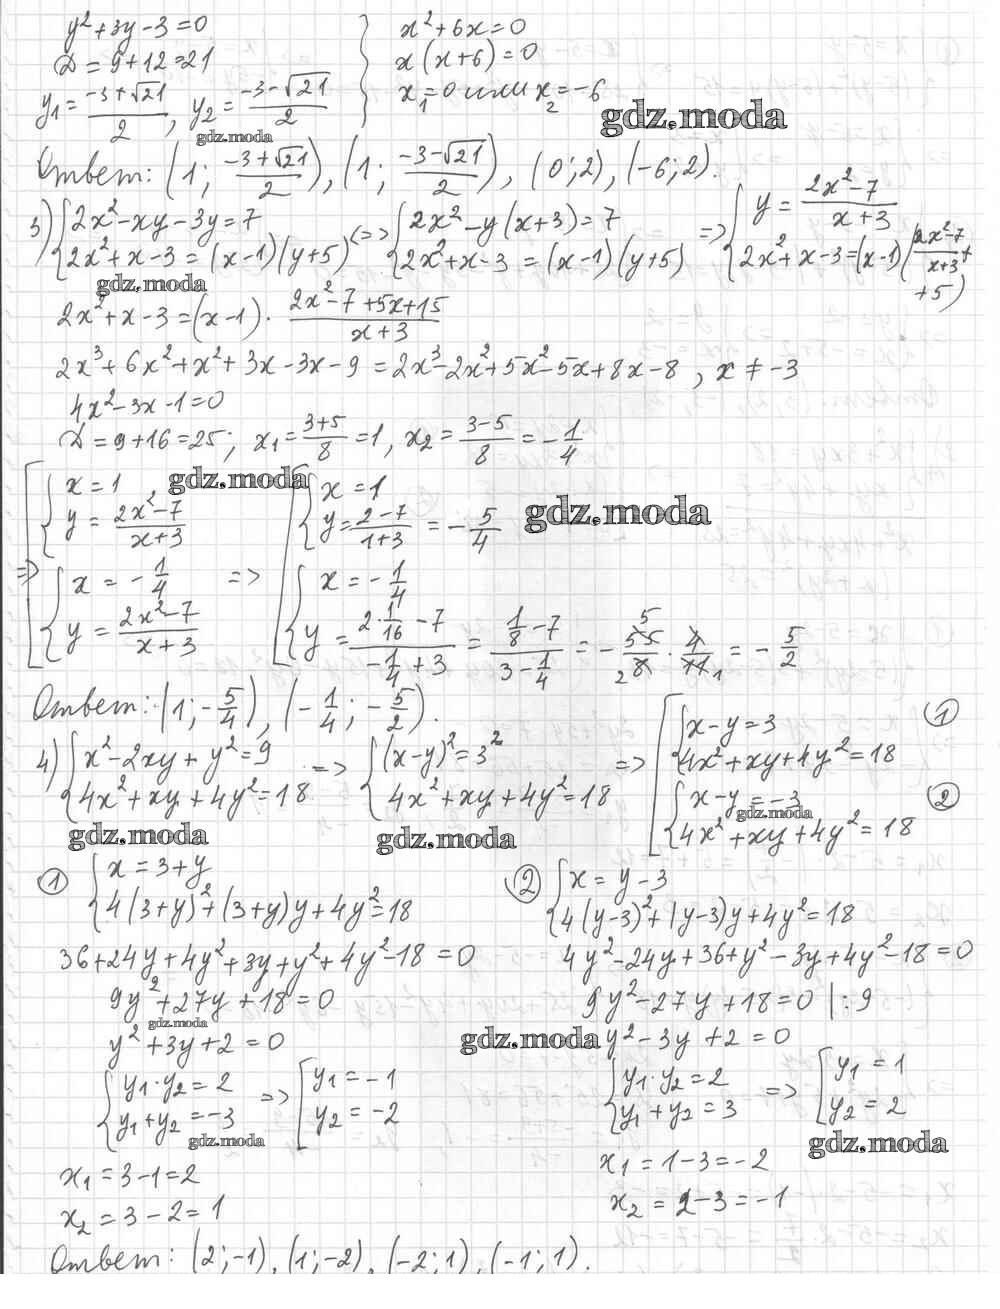 y²+3y-3=0
D=9+12=21
y₁=(-3+√21)/2, y₂=(-3-√21)/2
x²+6x=0
x(x+6)=0
x₁=0 или x₂=-6
gdz.moda
gdz.moda
Ответ: (1; (-3+√21)/2), (1; (-3-√21)/2), (0;2), (-6;2).
3) {2x²-xy-3y=7 <=> {2x²-y(x+3)=7 => {y=(2x²-7)/(x+3)
{2x²+x-3=(x-1)(y+5) {2x²+x-3=(x-1)(y+5) {2x²+x-3=(x-1)((2x²-7)/(x+3)+
+5)
gdz.moda
2x²+x-3=(x-1)·(2x²-7+5x+15)/(x+3)
2x³+6x²+x²+3x-3x-9=2x³-2x²+5x²-5x+8x-8, x≠-3
4x²-3x-1=0
D=9+16=25; x₁=(3+5)/8=1, x₂=(3-5)/8=-1/4
gdz.moda
=> [{x=1, y=(2x²-7)/(x+3)
{x=-1/4
y=(2x²-7)/(x+3)
=> [{x=1
y=(2-7)/(1+3)=-5/4
gdz.moda
{x=-1/4
y=(2·1/16-7)/(-1/4+3)=(1/8-7)/(3-1/4)=-55/8·4/11=-5/2
Ответ: (1;-5/4), (-1/4;-5/2).
4) {x²-2xy+y²=9 => {(x-y)²=3² => [{x-y=3 ①
{4x²+xy+4y²=18 {4x²+xy+4y²=18 {4x²+xy+4y²=18
{x-y=-3 ②
{4x²+xy+4y²=18
gdz.moda
gdz.moda
gdz.moda
① {x=3+y
{4(3+y)²+(3+y)y+4y²=18
36+24y+4y²+3y+y²+4y²-18=0
9y²+27y+18=0
gdz.moda
y²+3y+2=0
{y₁·y₂=2 => [y₁=-1
{y₁+y₂=-3 [y₂=-2
gdz.moda
x₁=3-1=2
x₂=3-2=1
② {x=y-3
{4(y-3)²+(y-3)y+4y²=18
4y²-24y+36+y²-3y+4y²-18=0
9y²-27y+18=0 |:9
gdz.moda
y²-3y+2=0
{y₁·y₂=2 => [y₁=1
{y₁+y₂=3 [y₂=2
gdz.moda
x₁=1-3=-2
x₂=2-3=-1
Ответ: (2;-1), (1;-2), (-2;1), (-1;1).